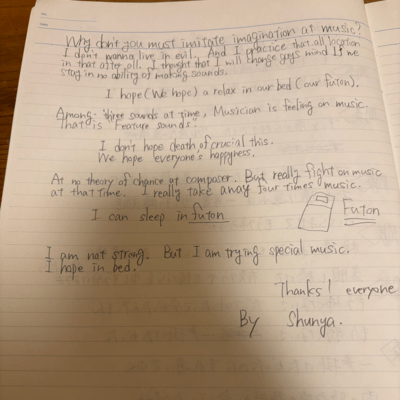 Why don't you must imitate imagination at music?
I don't wanna live in evil. And I practice that all location
in that after all. I thought that I will change guys mind if we
stay in no ability of making sounds.
I hope (We hope) a relax in our bed (our futon).
Among "three sounds at time, Musician is feeling on music.
That is "Feature sounds".
I don't hope death of crucial this.
We hope everyone's happyness.
At no theory of chance at composer. But really fight on music
at that time. I really take away four times music.
I can sleep in futon
Futon
I am not strong. But I am trying special music.
I hope in bed.
Thanks! everyone
By Shunya.